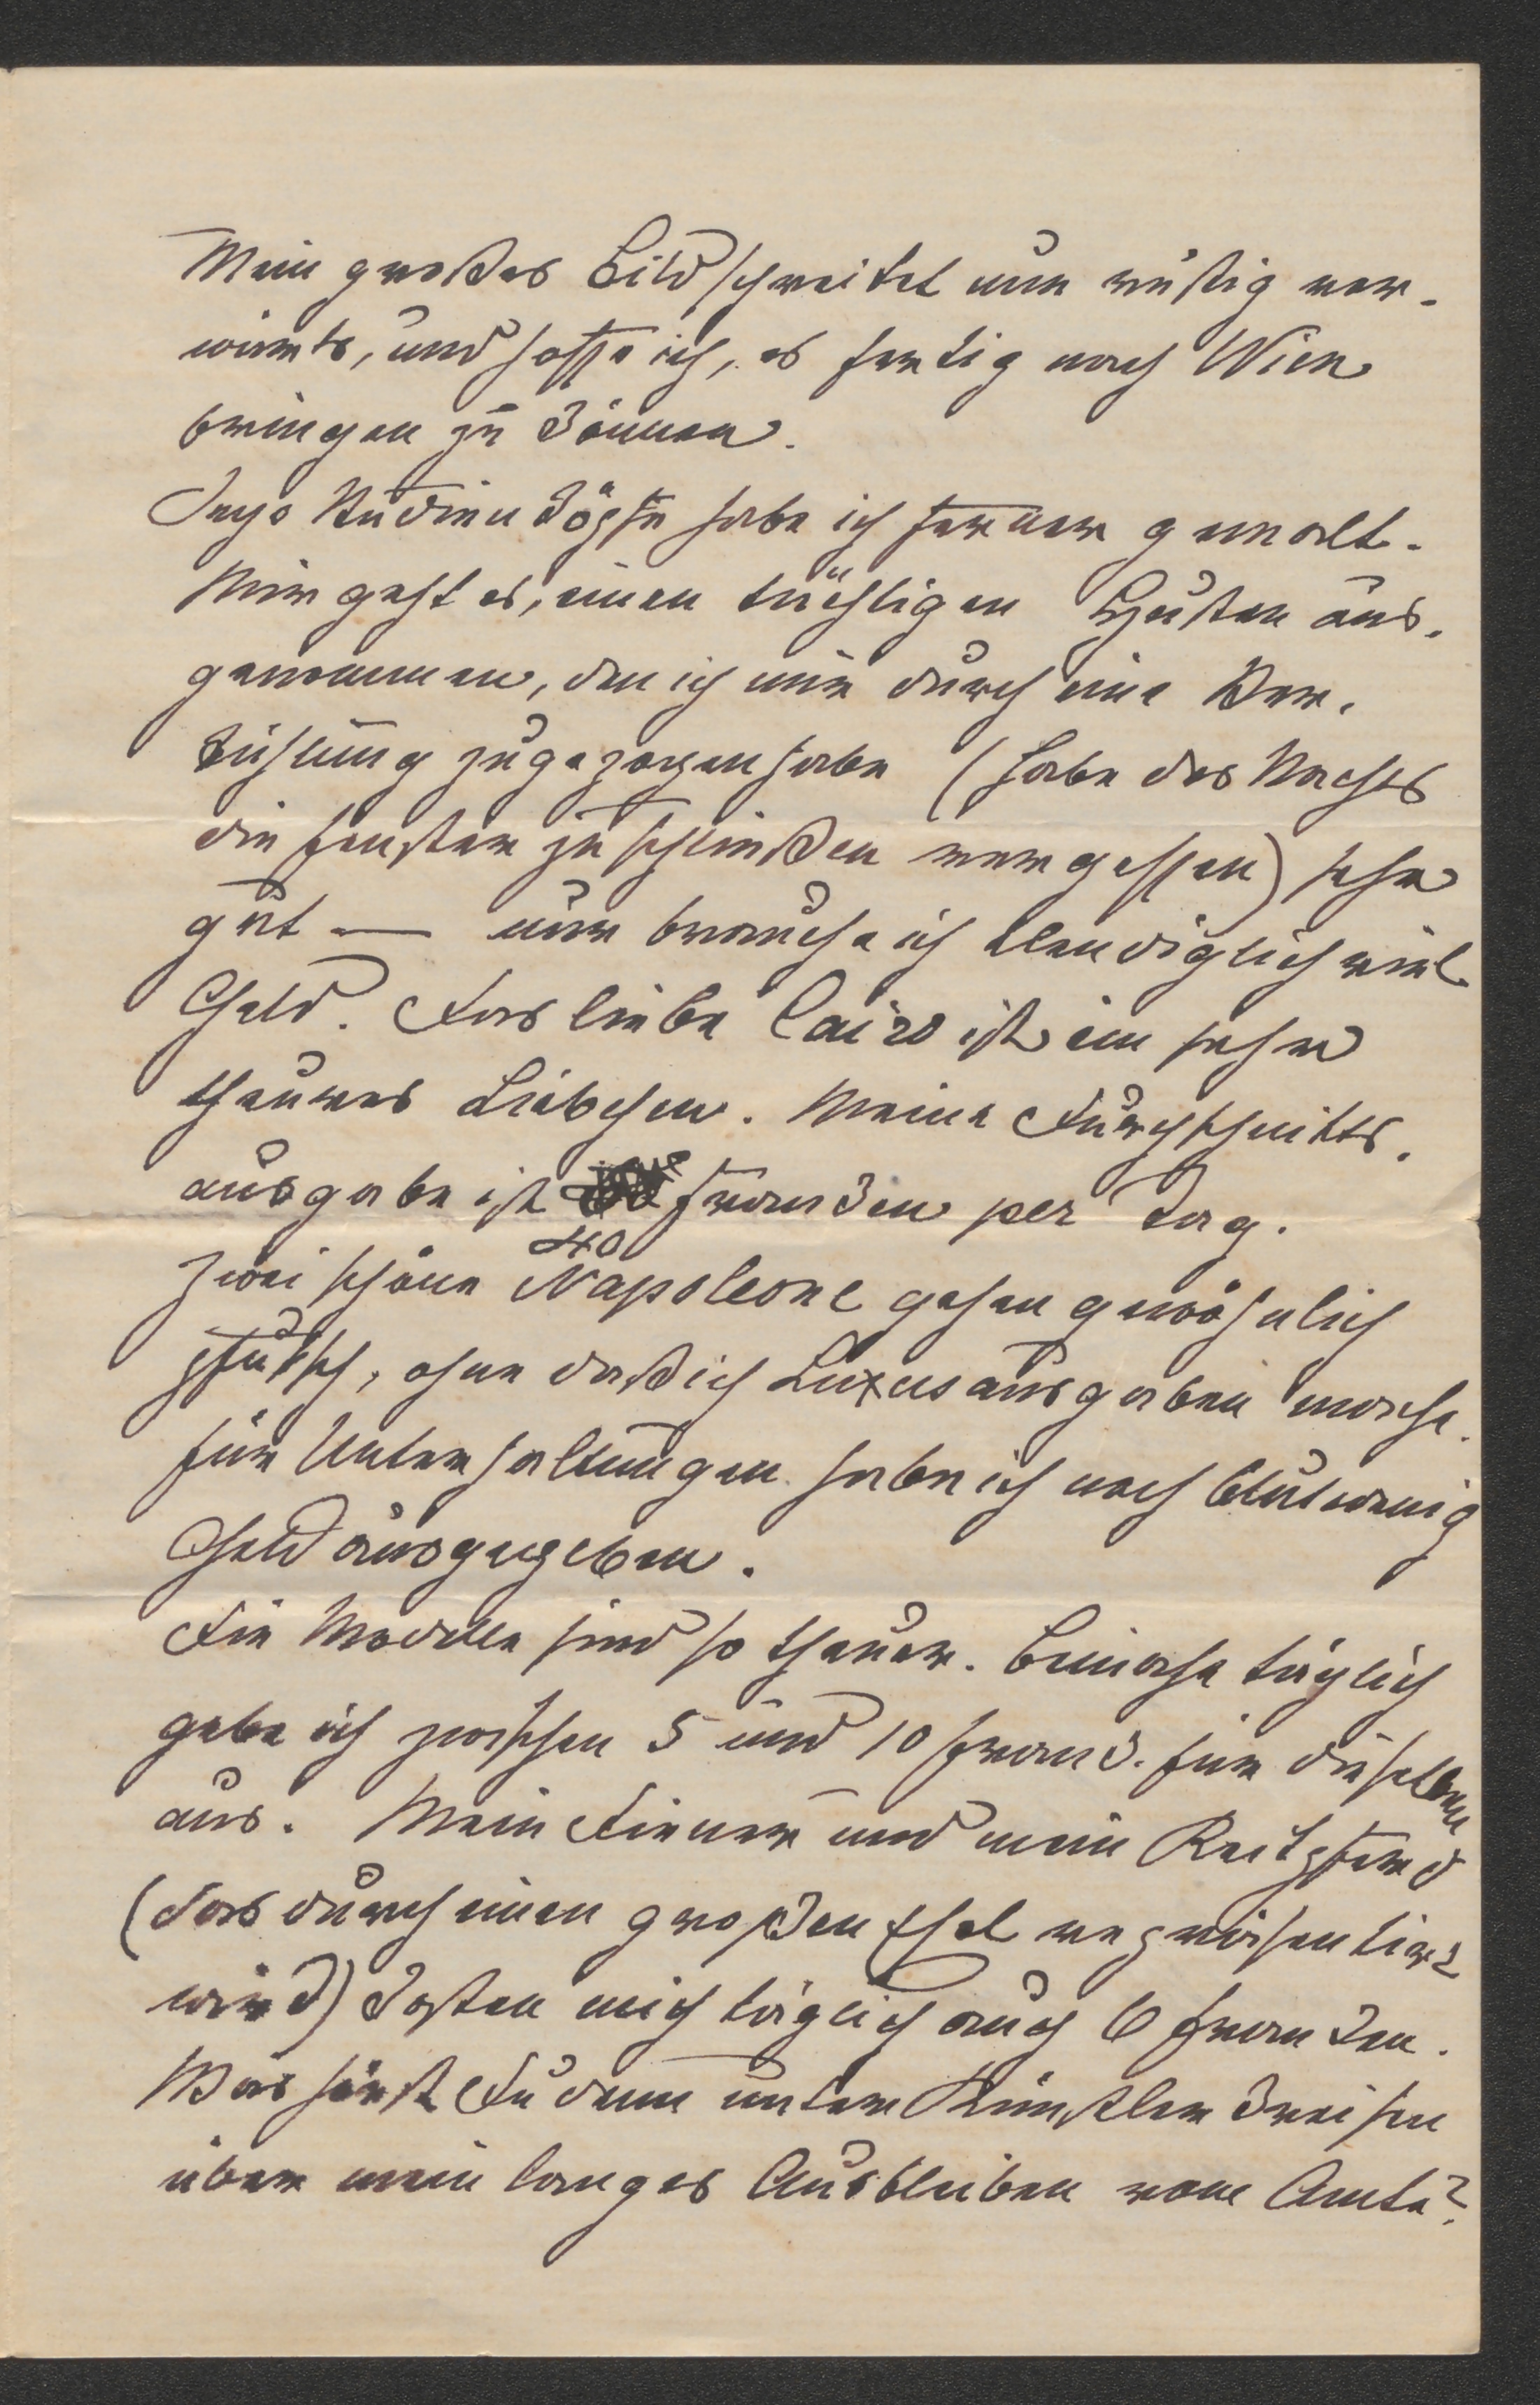 Mein großes Bild schreitet nun rüstig vor-
wärts, und hoffe ich, es fertig nach Wien
bringen zu können.
Sechs Studienköpfe habe ich ferner gemalt.
Mir geht es, einen tüchtigen Husten aus-
genommen, den ich mir durch eine Ver-
kühlung zugezogen habe (habe des Nachts
die Fenster zu schließen vergessen) sehr
gut — nur brauche ich elendiglich viel
Geld. Das liebe Cairo ist ein sehr
theures Liebchen. Meine Durchschnitts-
ausgabe ist 40 Franken per Tag.
Zwei schöne Napoleone gehen gewöhnlich
pfutsch, ohne daß ich Luxusausgaben mache.
Für Unterhaltungen habe ich noch blutwenig
Geld ausgegeben.
Die Modelle sind so theuer. Beinahe täglich
gebe ich zwischen 5 und 10 Frank. für dieselben
aus. Mein Diener und mein Reitpferd
(das durch einen großen Esel repräsentirt
wird) kosten mich täglich auch 6 Franken.
Was hörst Du denn unter Künstlerkreisen
über mein langes Ausbleiben vom Amte?